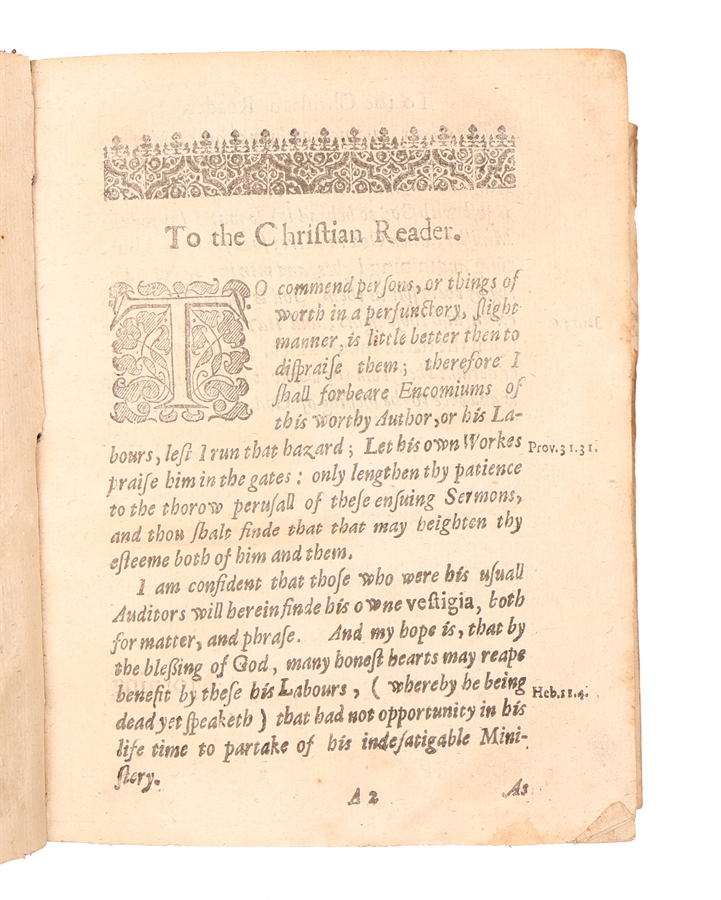 To the Chriſtian Reader.
TO commend perſons, or things of
worth in a perfunctory, ſlight
manner, is little better then to
diſpraiſe them; therefore I
ſhall forbeare Encomiums of
this worthy Author, or his La-
bours, leſt I run that hazard; Let his own Workes Prov.31.31.
praiſe him in the gates: only lengthen thy patience
to the thorow peruſall of theſe enſuing Sermons,
and thou ſhalt finde that that may heighten thy
eſteeme both of him and them.
I am confident that thoſe who were his uſuall
Auditors will herein finde his owne veſtigia, both
for matter, and phraſe. And my hope is, that by
the bleßing of God, many honeſt hearts may reape
benefit by theſe his Labours, (whereby he being Heb.11.4.
dead yet ſpeaketh) that had not opportunity in his
life time to partake of his indefatigable Mini-
ſtery.
A 2 As